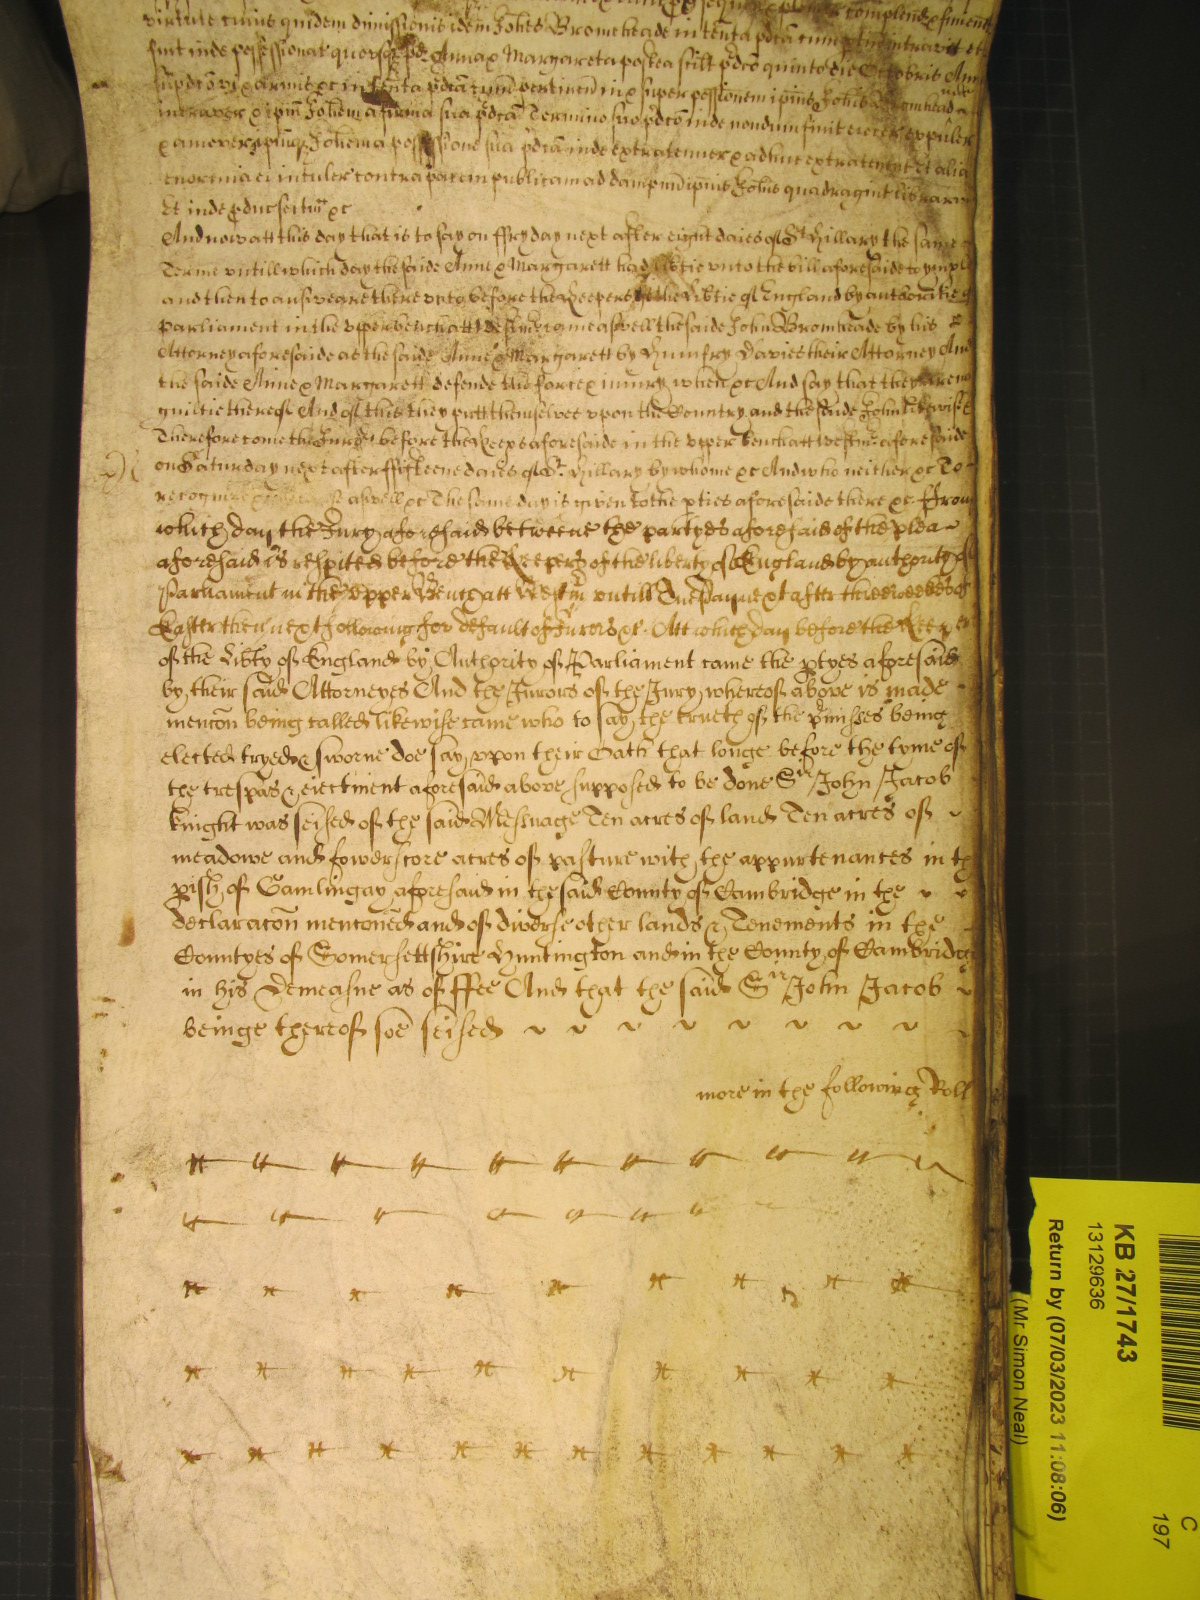 virtute cuius quidem dimissionis idem Johes Bromheade in tenta pdca cum ptin intravit et
fuit inde possessionat quousq pd Anna & Margareta postea scilt pdco quinto die Octobris Anno
supdco vi & armis &c in tenta pdca cum pertinen in & super possionem ipius Johis Bromhead
intraver & ipm Johem a firma sua pdca Termino suo pdco inde nondum finit eiecer expuler
& amover ipmq Johem a possessione sua pdca inde extratenuer & adhuc extratenent Et alia
enormia ei intuler contra pacem publicam ad dampnu ipius Johis quadragint librarum
Et inde pduc sectam &c
And now att this day that is to say on ffryday next after eight daies of St Hillary the same
Terme untill which day the saide Anne & Margarett had libtie unto the bill aforesaide to imple
and then to answeare there unto before the Keepers of the Libtie of England by authoritie of
Parliament in the upper bench att Westmr came aswell the saide John Bromheade by his
Attorney aforesaide as the saide Anne & Margarett by Humfry Davies their Attorney And
the saide Anne & Margarett defende the force & iniury when &c And say that they are no
guiltie thereof And of this they putt themselves upon the Country and the saide John likewise
Therefore come the Jury before the Keeps aforesaide in the upper bench att Westmr aforesaide
on Saturday next after ffifteene daies of St Hillary by whome &c And who neither &c To
recognize aswell &c The same day is given to the pties aforesaide there &c From
which day the Jury aforesaid betweene the partyes aforesaid of the plea
aforesaid is respited before the Keepers of the liberty of England by authority of
Parliament in the Upper Bench att Westmr untill Tuesday next after three weekes of
Easter then next following for default of Jurors &c. Att which day before the Keepers
of the Libty of England by Authority of Parliament came the ptyes aforesaid
by their said Attorneyes And the Jurors of the Jury whereof above is made
mencon being called likewise came who to say the trueth of the pmisses being
elected tryed & sworne doe say upon their Oath that longe before the tyme of
the trespas & eiectment aforesaid above supposed to be done Sr John Jacob
knight was seised of the said Messuage Ten acres of land Ten acres of
meadowe and fowerscore acres of pasture with the appurtenances in th
pish of Gamlingay aforesaid in the said County of Cambridge in the
declaracon menconed and of diverse other lands & Tenements in the
Countyes of Somersettshire Huntington and in the County of Cambridge
in his Demeasne as of ffee And that the said Sr John Jacob
beinge thereof soe seised
more in the following Roll
KB 27/1743
13129636
Return by (07/03/2023 11:08:06)
(Mr Simon Neal)
C
197